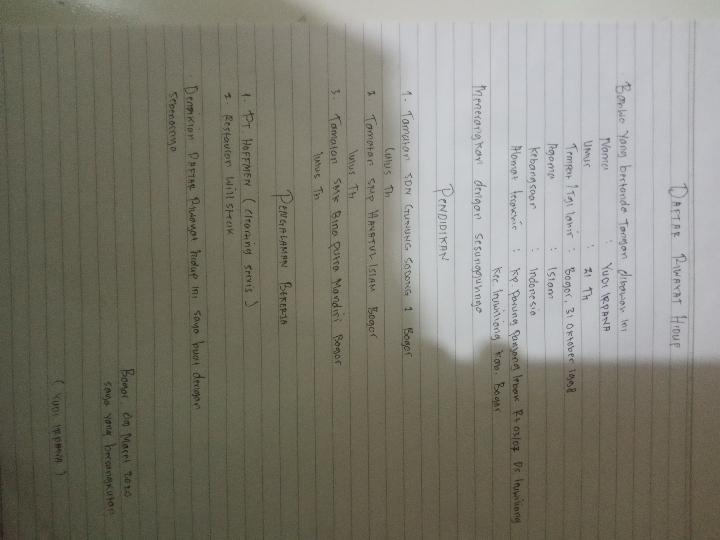 DAFTAR RIWAYAT HIDUP
Bahwa yang bertanda tangan dibawah ini
Nama : YUDI IRPANA
Umur : 21 Th
Tempat / Tgl lahir : Bogor, 31 Oktober 1998
Agama : Islam
Kebangsaan : Indonesia
Alamat terakhir : Kp Parung Panjang lebak Rt 03/07 Ds leuwiliang
Kec leuwiliang Kab. Bogor
Menerangkan dengan sesungguhnya
PENDIDIKAN
1. Tamatan SDN GUNUNG SODONG 1 Bogor
lulus Th
2 Tamatan SMP HAYATUL ISLAM Bogor
lulus Th
3. Tamatan SMK Bina putra Mandiri Bogor
lulus Th
PENGALAMAN BEKERJA
1. PT HOFFMEN (Cleaning servis)
2. Restauran Will steak
Demikian DAFTAR Riwayat hidup ini saya buat dengan
sebenarnya
Bogor Maret 2020
saya yang bersangkutan
( YUDI IRPANA )